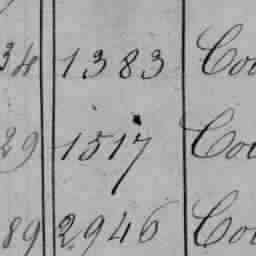 34 1383 Cou
29 1517 Cou
89 2946 Cou